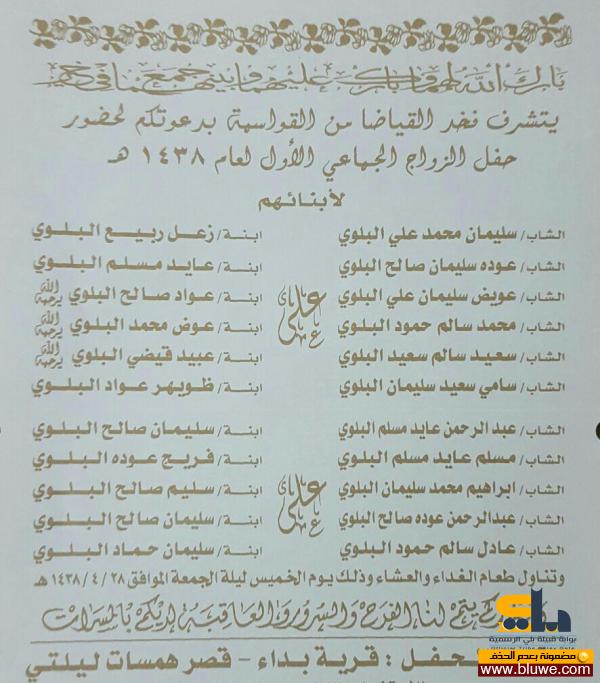 بارك الله لهما وبارك عليهما وجمع بينهما في خير
يتشرف فخذ القياضا من القواسمة بدعوتكم لحضور
حفل الزواج الجماعي الأول لعام ١٤٣٨ هـ
لأبنائهم
الشاب/ سليمان محمد علي البلوي على ابنة/ زعل ربيع البلوي
الشاب/ عوده سليمان صالح البلوي ابنة/ عايد مسلم البلوي
الشاب/ عويض سليمان علي البلوي ابنة/ عواد صالح البلوي يرحمه الله
الشاب/ محمد سالم حمود البلوي ابنة/ عوض محمد البلوي يرحمه الله
الشاب/ سعيد سالم سعيد البلوي ابنة/ عبيد قيضي البلوي يرحمه الله
الشاب/ سامي سعيد سليمان البلوي ابنة/ ظويهر عواد البلوي
الشاب/ عبدالرحمن عايد مسلم البلوي على ابنة/ سليمان صالح البلوي
الشاب/ مسلم عايد مسلم البلوي ابنة/ فريج عوده البلوي
الشاب/ ابراهيم محمد سليمان البلوي ابنة/ سليم صالح البلوي
الشاب/ عبدالرحمن عوده صالح البلوي ابنة/ سليمان صالح البلوي
الشاب/ عادل سالم حمود البلوي ابنة/ سليمان حماد البلوي
وتناول طعام الغداء والعشاء وذلك يوم الخميس ليلة الجمعة الموافق ٢٨ / ٤ / ١٤٣٨ هـ
يتم لنا الفرح والسرور والعاقبة لديكم بالمسرات
حفل : قرية بداء - قصر همسات ليلتي
بلي
بوابة قبيلة بلي الرسمية
مضمونة بعدم الحذف
www.bluwe.com